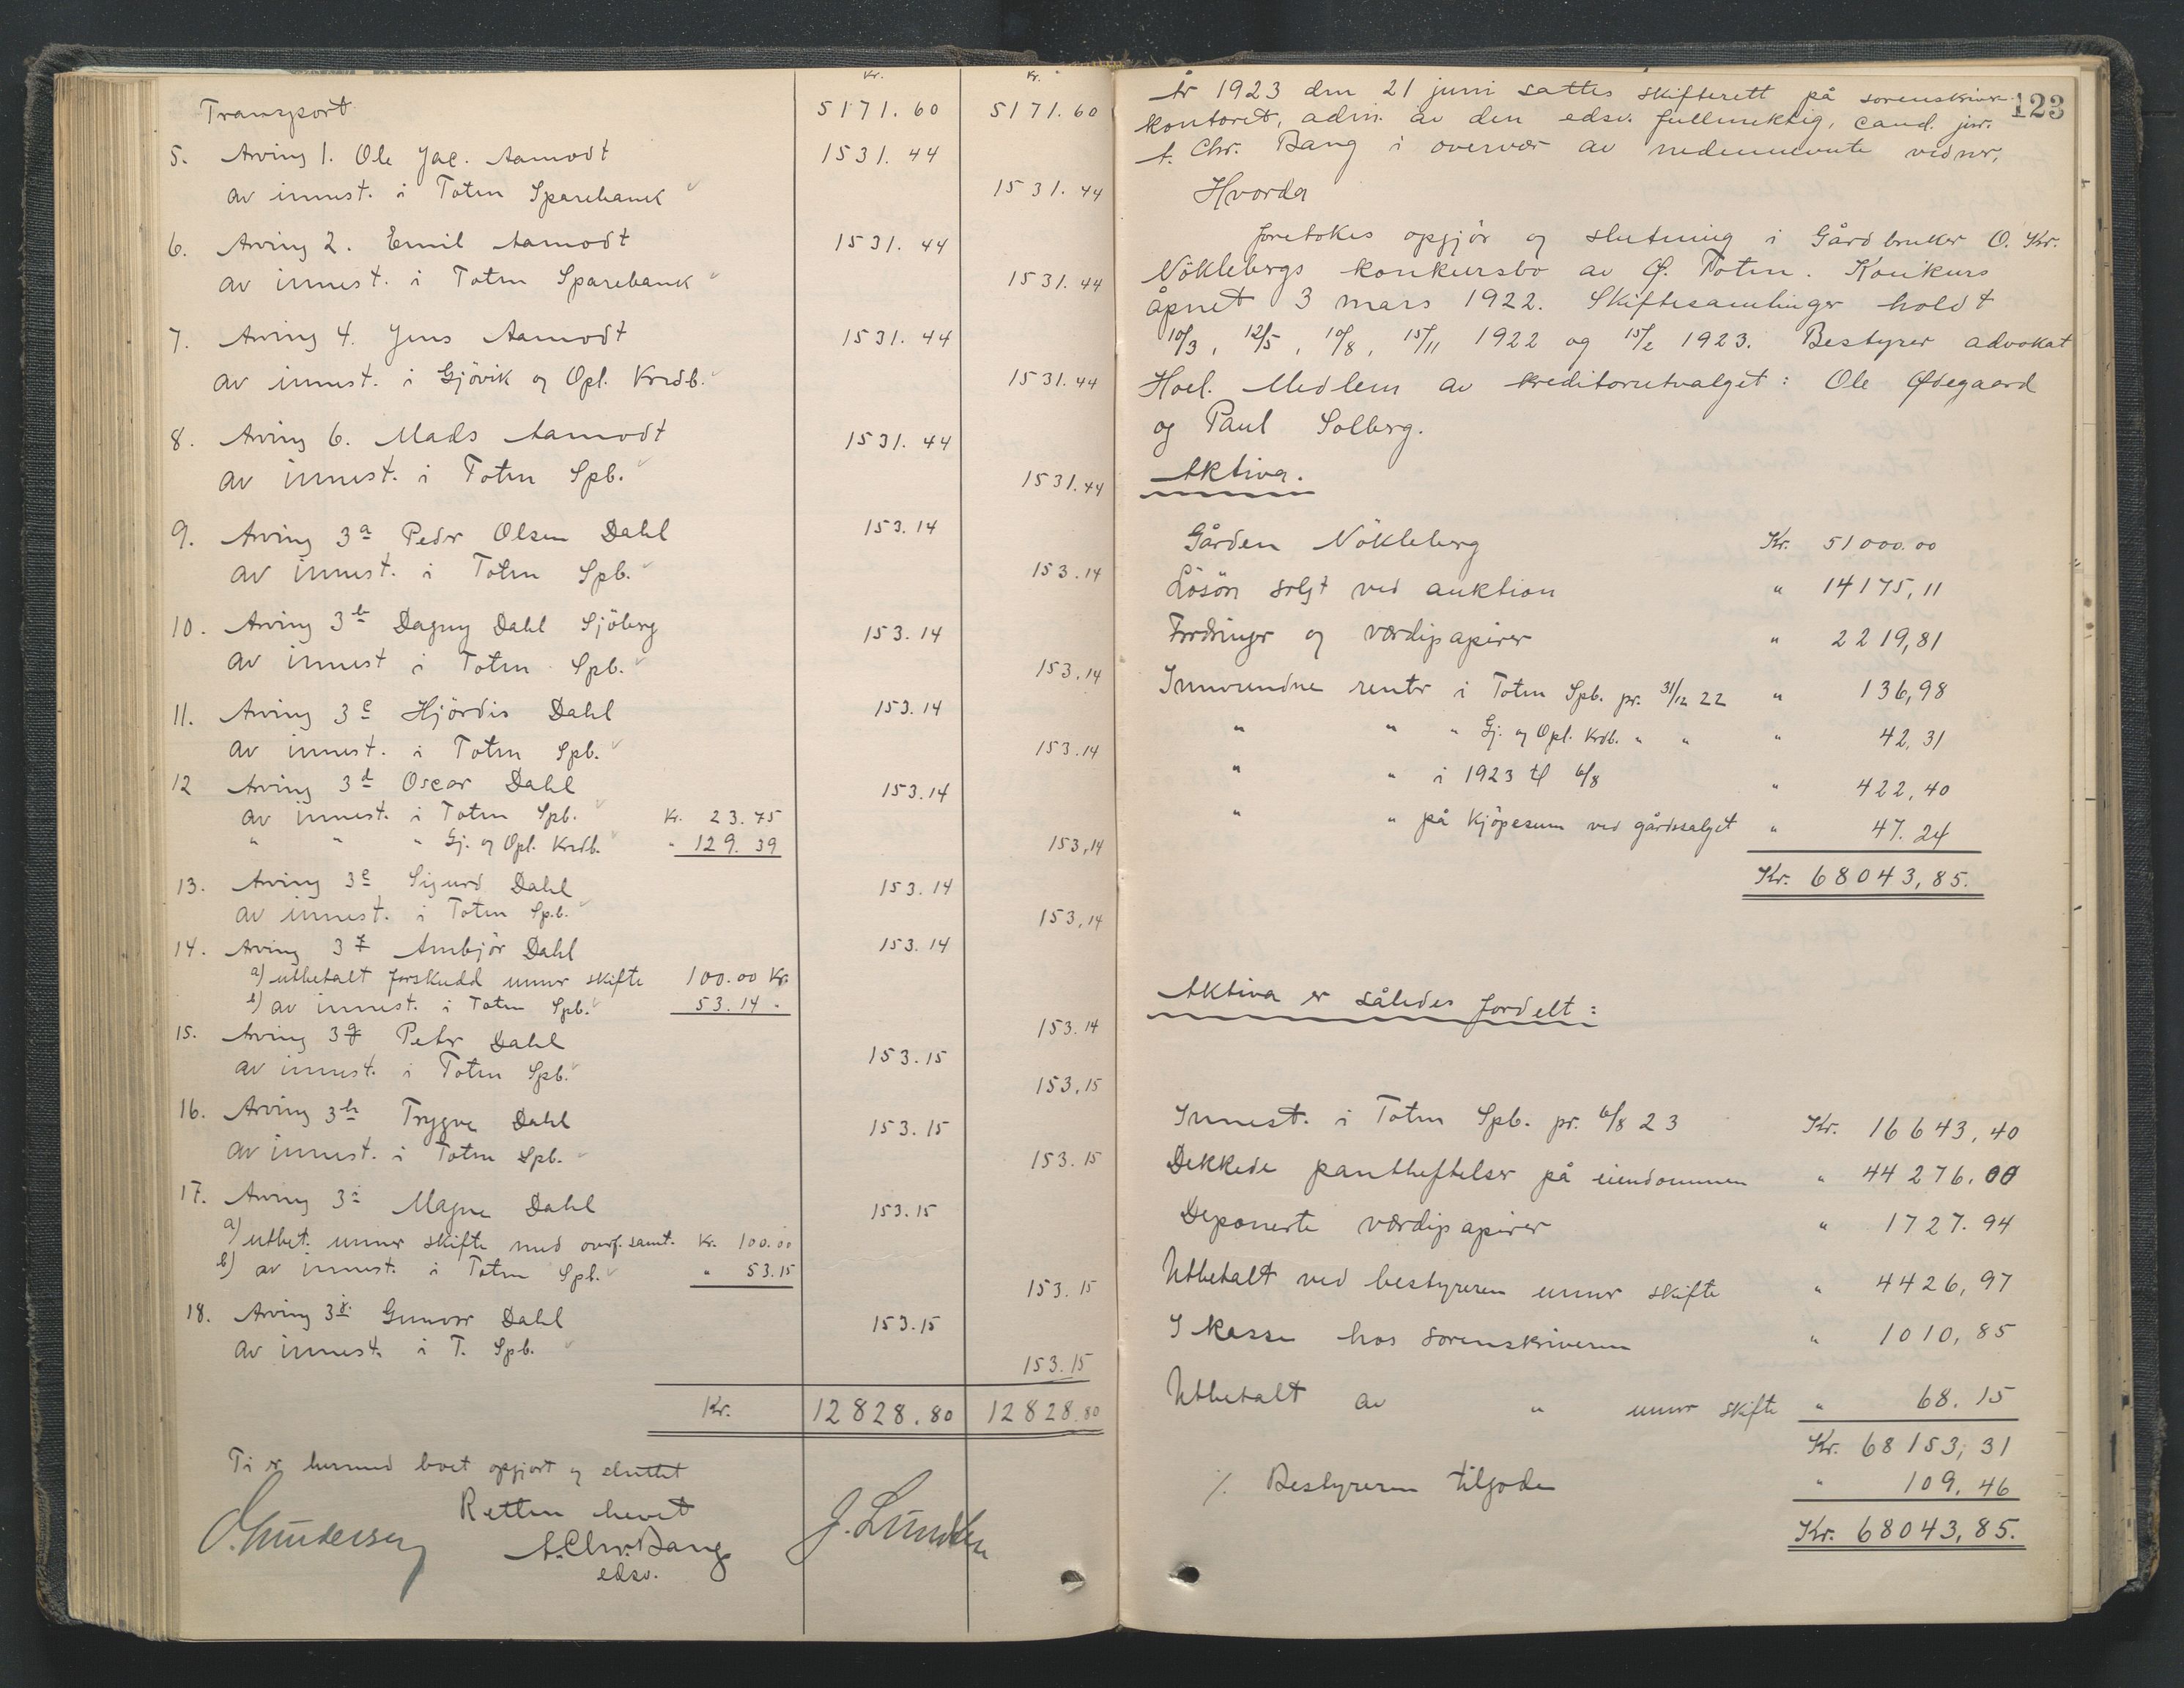 Kr. Kr.
Transport 5171.60 5171.60
5. Arving 1. Ole Jac. Aamodt 1531.44
av innest. i Toten Sparebank 1531.44
6. Arving 2. Emil Aamodt 1531.44
av innest. i Toten Sparebank 1531.44
7. Arving 4. Jens Aamodt 1531.44
av innest. i Gjövik og Opl. Kredb. 1531.44
8. Arving 6. Mads Aamodt 1531.44
av innest. i Toten Spb. 1531.44
9. Arving 3a Peder Olsen Dahl 153.14
av innest. i Toten Spb. 153.14
10. Arving 3b Dagny Dahl Sjöberg 153.14
av innest i Toten Spb. 153.14
11. Arving 3c Hjördis Dahl 153.14
av innest. i Toten Spb. 153.14
12 Arving 3d Oscar Dahl 153.14
av innest. i Toten Spb. Kr. 23.75
" " " Gj. og Opl. Kredb. " 129.39 153,14
13. Arving 3e Sigurd Dahl 153.14
av innest. i Toten Spb. 153,14
14. Arving 3f Ambjör Dahl 153.14
a) utbetalt forskudd under skifte 100.00 Kr.
b) av innest. i Toten Spb. 53.14 " 153.14
15. Arving 3g Peter Dahl 153.15
av innest. i Toten Spb. 153,15
16. Arving 3h Trygve Dahl 153.15
av innest. i Toten Spb. 153.15
17. Arving 3i Magne Dahl 153.15
a) utbet. under skifte med overf. samt. Kr. 100.00
b) av innest. i Toten Spb. " 53.15 153.15
18. Arving 3j. Gunvor Dahl 153.15
av innest. i T. Spb. 153.15
Kr. 12828.80 12828.80
Ti er hermed boet opgjort og sluttet
Retten hevet
O. Gundersen A. Chr. Bang J. Lunden
edsv.
123
År 1923 den 21 juni sattes skifterett på sorenskriver
kontoret, adm. av den edsv. fullmektig, cand. jur.
A. Chr. Bang i overvær av nedennevnte vidner,
Hvorda
foretokes opgjör og slutning i Gårdbruker O. Kr.
Nöklebergs konkursbo av Ø. Toten. Konkurs
åpnet 3 mars 1922. Skiftesamlinger holdt
10/3, 12/5, 10/8, 15/11 1922 og 15/2 1923. Bestyrer advokat
Hoel. Medlem av kreditorutvalget: Ole Ødegaard
og Paul Solberg.
Aktiva.
Gården Nökleberg Kr. 51000.00
Lösöre solgt ved auktion " 14175,11
Fordringer og værdipapirer " 2219,81
Innvundne renter i Toten Spb. pr. 31/12 22 " 136,98
" " " Gj. og Opl. Krdb. " " " 42,31
" " i 1923 til 6/8 " 422,40
" " på kjöpesum ved gårdssalget " 47.24
Kr. 68043,85.
Aktiva er således fordelt:
Innest. i Toten Spb. pr. 6/8 23 Kr. 16643,40
Dekkede pantheftelser på eiendommen " 44276.00
Deponerte værdipapirer " 1727.94
Utbetalt ved bestyreren under skifte " 4426,97
I kasse hos sorenskriveren " 1010,85
Utbetalt av " under skifte " 68.15
Kr. 68153,31
./. Bestyreren tilgode " 109.46
Kr. 68043,85.